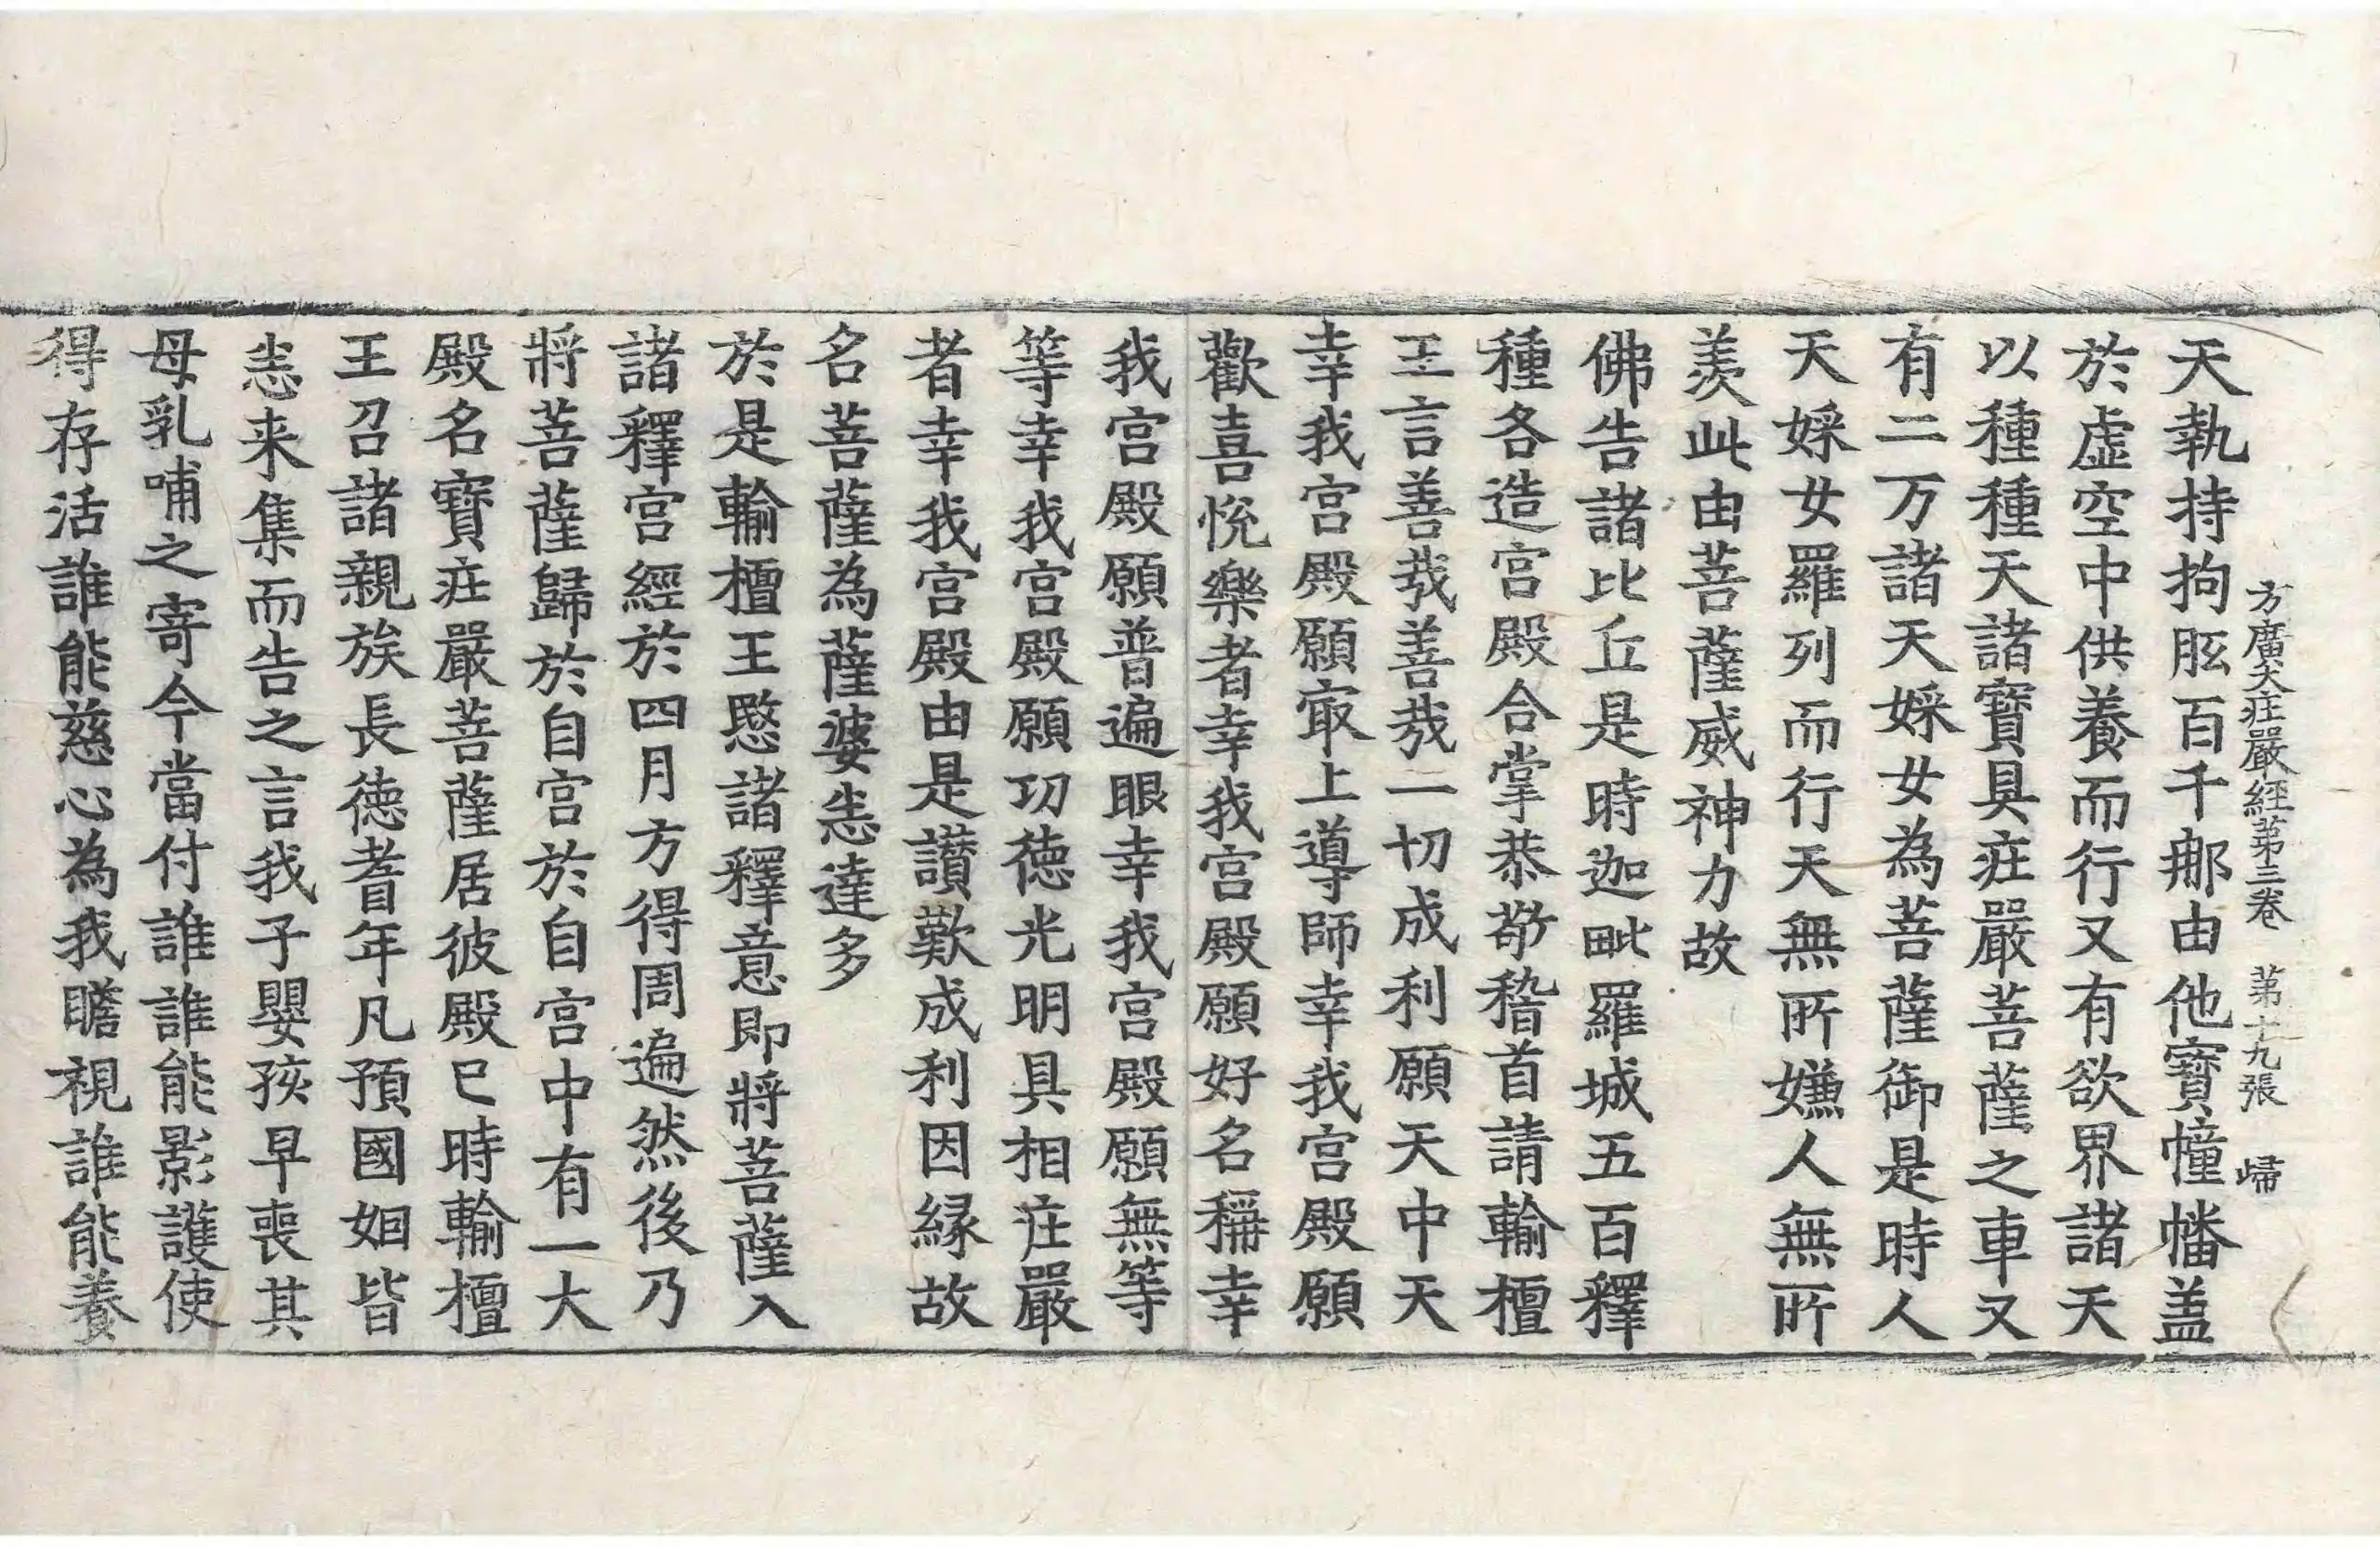 方廣大庄嚴經第三卷 第十九張 歸
天執持拘胝百千那由他寶幢幡盖
於虛空中供養而行又有欲界諸天
以種種天諸寶具庄嚴菩薩之車又
有二万諸天婇女為菩薩御是時人
天婇女羅列而行天無所嫌人無所
羨此由菩薩威神力故
佛告諸比丘是時迦毗羅城五百釋
種各造宮殿合掌恭敬稽首請輸檀
王言善哉善哉一切成利願天中天
幸我宮殿願㝡上導師幸我宮殿願
歡喜悅樂者幸我宮殿願好名稱幸
我宮殿願普遍眼幸我宮殿願無等
等幸我宮殿願功德光明具相庄嚴
者幸我宮殿由是讚歎成利因緣故
名菩薩為薩婆悉達多
於是輸檀王愍諸釋意即將菩薩入
諸釋宮經於四月方得周遍然後乃
將菩薩歸於自宮於自宮中有一大
殿名寶庄嚴菩薩居彼殿巳時輸檀
王召諸親族長德耆年凡預國姻皆
悉来集而告之言我子嬰孩早喪其
母乳哺之寄今當付誰誰能影護使
得存活誰能慈心為我瞻視誰能養